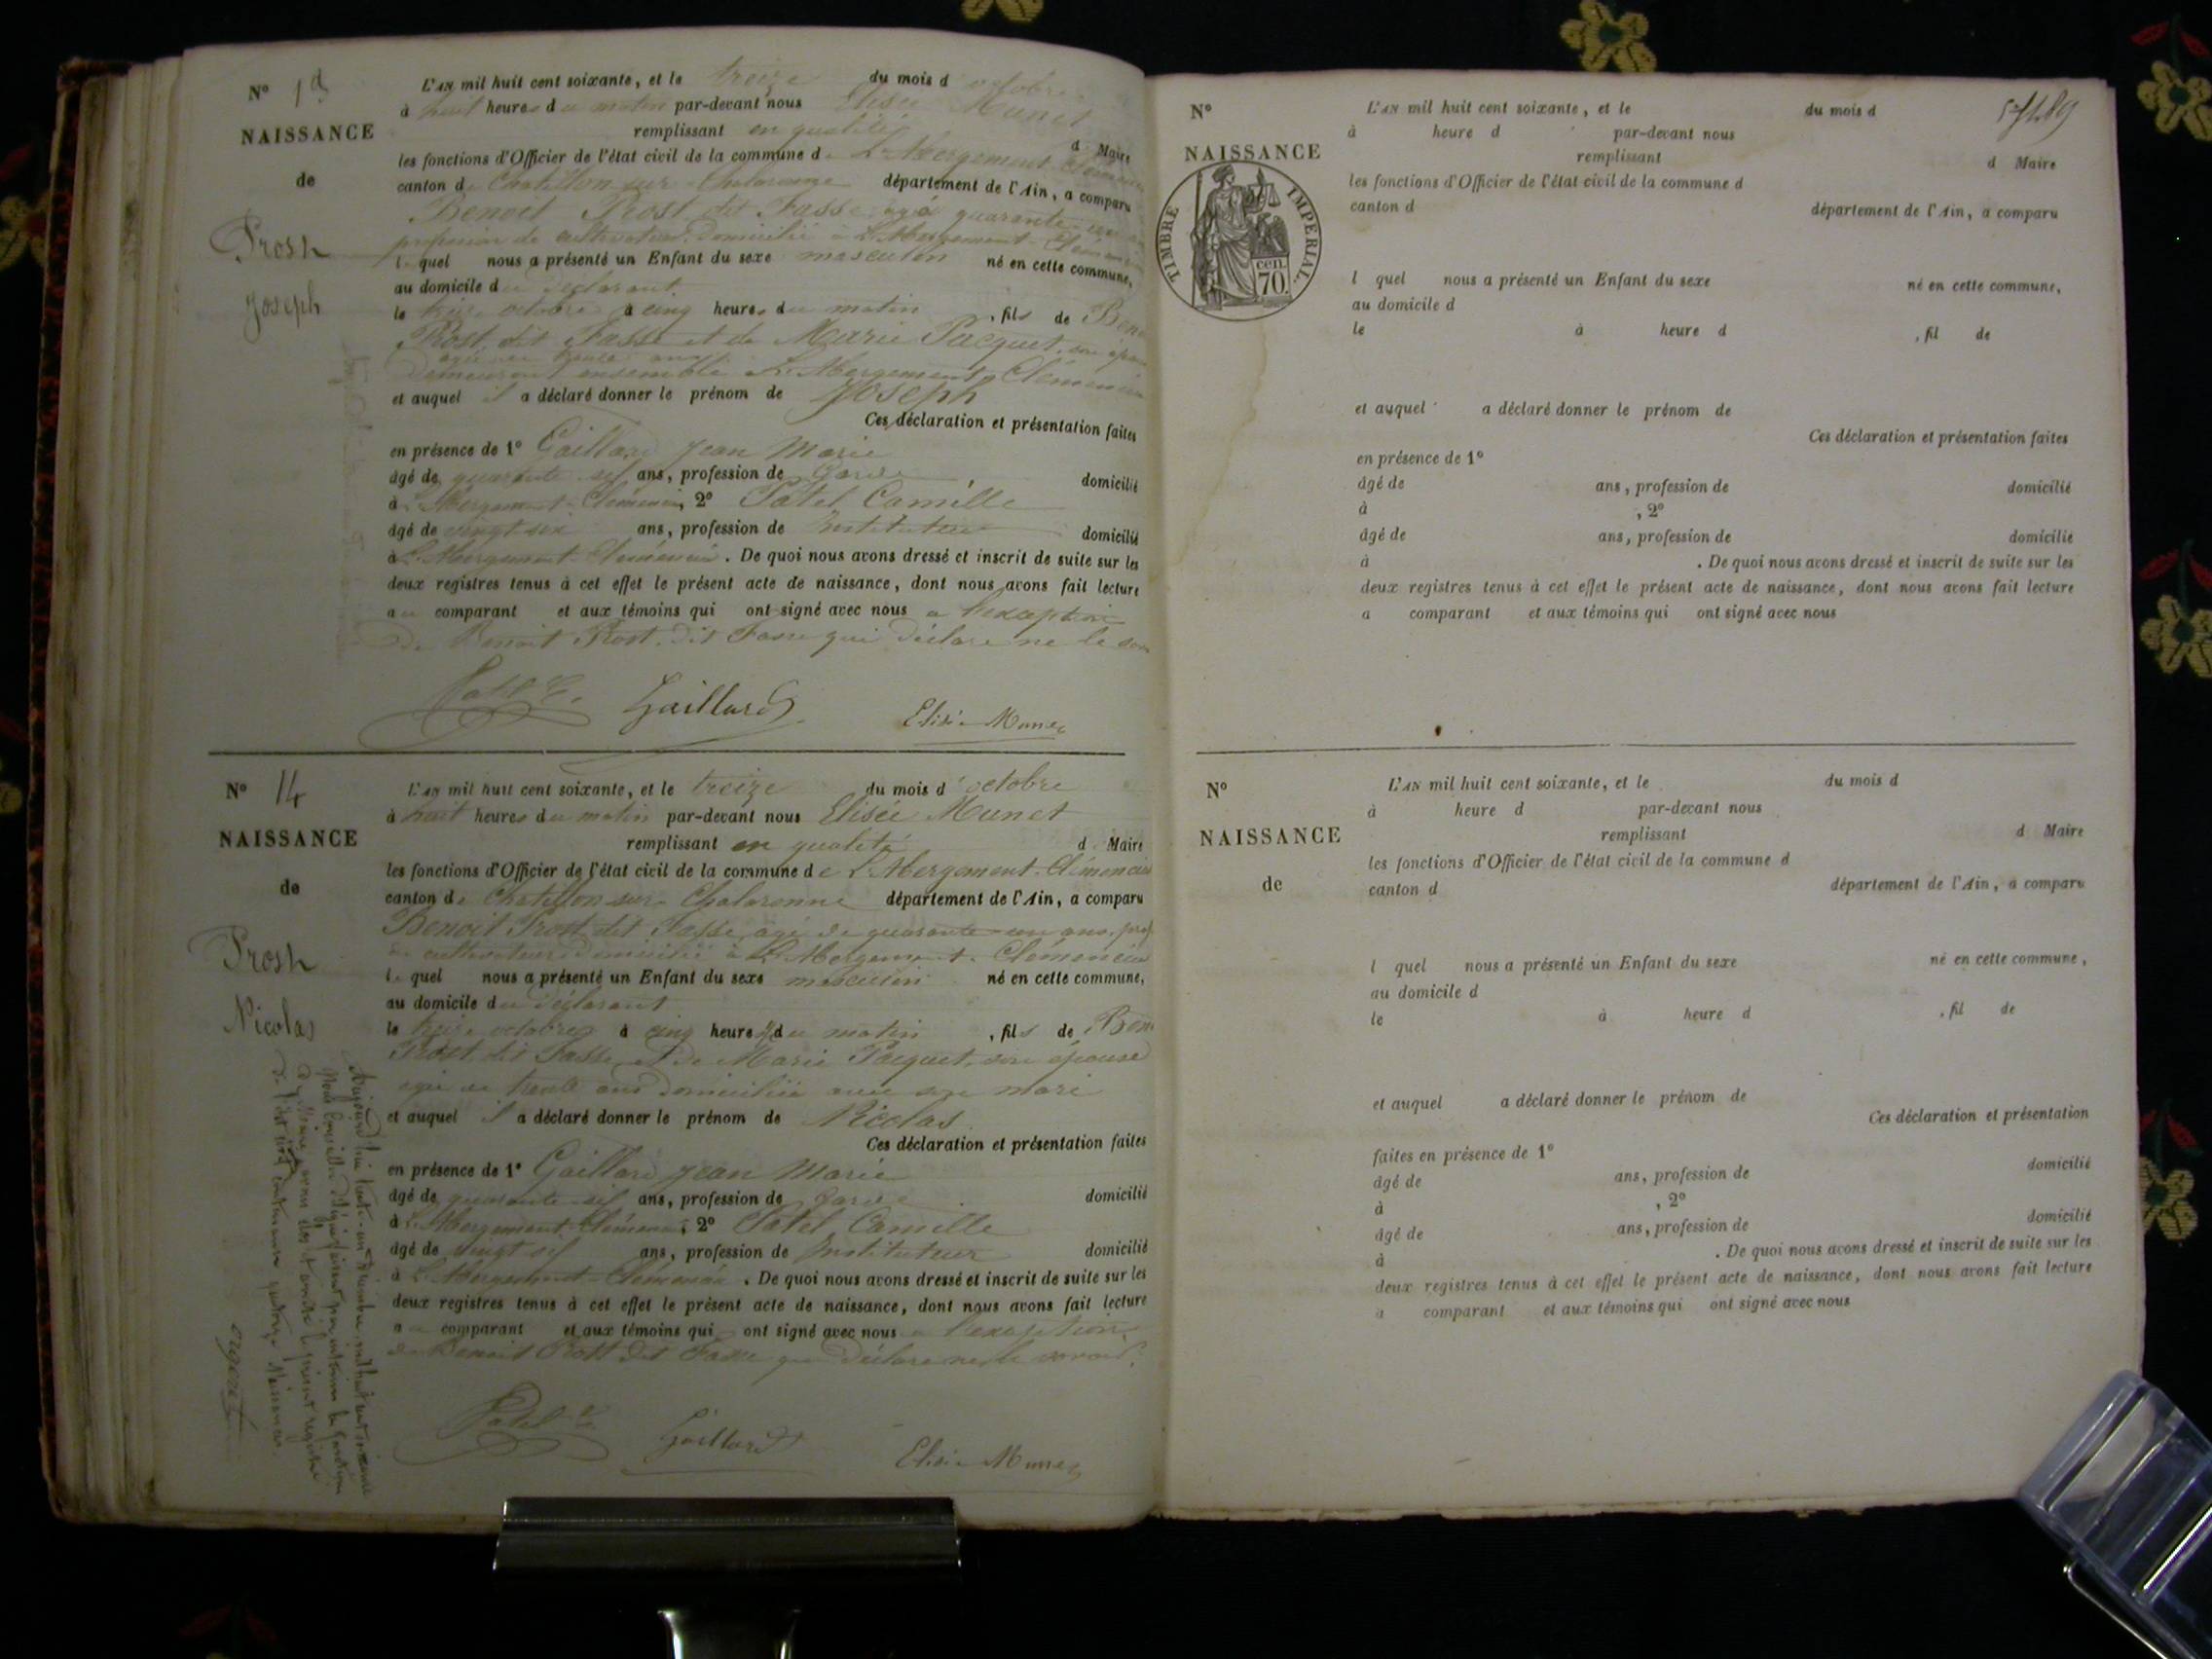 L'AN mil huit cent soixante, et le treize du mois d'octobre
No
à huit heures du matin par-devant nous Elisée Munet
NAISSANCE
remplissant en qualité d Maire
les fonctions d'Officier de l'état civil de la commune de L'Abergement-Clémencia
de
canton de Chatillon-sur-Chalaronne département de l'Ain, a comparu
Benoit Prost dit Fasse, agé quarante
Prost
profession de cultivateur, domicilié à L'Abergement-Clémencia
lequel nous a présenté un Enfant du sexe masculin né en cette commune,
au domicile du déclarant
Joseph
le treize octobre à cinq heures du matin, fils de
Prost dit Fasse et de Marie Pacquet, son épouse
agée de trente ans
demeurant ensemble à L'Abergement-Clémencia
et auquel il a déclaré donner le prénom de Joseph
Ces déclaration et présentation faites
en présence de 1o Gaillard Jean Marie
âgé de quarante ans, profession de Garde domicilié
à L'Abergement-Clémencia, 2o Patel Camille
âgé de vingt ans, profession de Instituteur domicilié
à L'Abergement-Clémencia. De quoi nous avons dressé et inscrit de suite sur les
deux registres tenus à cet effet le présent acte de naissance, dont nous avons fait lecture
au comparant et aux témoins qui ont signé avec nous a l'exception
de Benoit Prost dit Fasse qui déclare ne le
Gaillard Elisée Munet
No 14
L'AN mil huit cent soixante, et le treize du mois d'octobre
à huit heures du matin par-devant nous Elisée Munet
NAISSANCE
remplissant en qualité d Maire
les fonctions d'Officier de l'état civil de la commune de L'Abergement-Clémencia
de
canton de Chatillon-sur-Chalaronne département de l'Ain, a comparu
Benoit Prost dit Fasse, agé de quarante-un ans, prof
Prost
de cultivateur domicilié à L'Abergement-Clémencia
lequel nous a présenté un Enfant du sexe masculin né en cette commune,
au domicile du déclarant
Nicolas
le treize octobre à cinq heures du matin, fils de
Prost dit Fasse et de Marie Pacquet, son épouse
agée de trente ans domiciliée avec son mari
et auquel il a déclaré donner le prénom de Nicolas
Ces déclaration et présentation faites
en présence de 1o Gaillard Jean Marie
âgé de quarante ans, profession de Garde domicilié
à L'Abergement-Clémencia, 2o Patel Camille
âgé de vingt ans, profession de Instituteur domicilié
à L'Abergement-Clémencia. De quoi nous avons dressé et inscrit de suite sur les
deux registres tenus à cet effet le présent acte de naissance, dont nous avons fait lecture
au comparant et aux témoins qui ont signé avec nous a l'exception
de Benoit Prost dit Fasse qui déclare ne le savoir.
Patel C. Gaillard Elisée Munet
Aujourd'hui trente-un Décembre mil huit cent soixante
de l'état civil contenant quatorze Naissances.
No
L'AN mil huit cent soixante, et le du mois d
à heure d par-devant nous
NAISSANCE
remplissant d Maire
les fonctions d'Officier de l'état civil de la commune d
canton d département de l'Ain, a comparu
TIMBRE IMPERIAL.
cen.
70.
l quel nous a présenté un Enfant du sexe né en cette commune,
au domicile d
le à heure d , fil de
et auquel a déclaré donner le prénom de
Ces déclaration et présentation faites
en présence de 1o
âgé de ans, profession de domicilié
à , 2o
âgé de ans, profession de domicilié
à . De quoi nous avons dressé et inscrit de suite sur les
deux registres tenus à cet effet le présent acte de naissance, dont nous avons fait lecture
a comparant et aux témoins qui ont signé avec nous
No
L'AN mil huit cent soixante, et le du mois d
à heure d par-devant nous
NAISSANCE
remplissant d Maire
les fonctions d'Officier de l'état civil de la commune d
de
canton d département de l'Ain, a comparu
l quel nous a présenté un Enfant du sexe né en cette commune,
au domicile d
le à heure d , fil de
et auquel a déclaré donner le prénom de
Ces déclaration et présentation
faites en présence de 1o
âgé de ans, profession de domicilié
à , 2o
âgé de ans, profession de domicilié
à . De quoi nous avons dressé et inscrit de suite sur les
deux registres tenus à cet effet le présent acte de naissance, dont nous avons fait lecture
a comparant et aux témoins qui ont signé avec nous